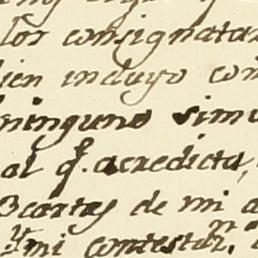 los consignatar
ien incluyo con
ninguno simu
al q.e acredicta,
3 cartas de mi a
mi contestaz.n